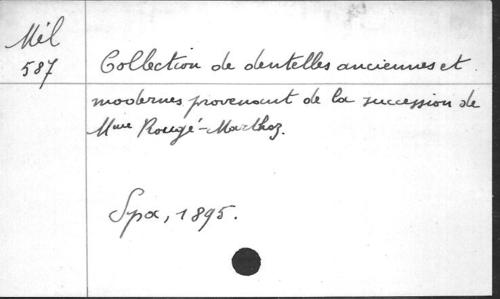 Mél
587
Collection de dentelles anciennes et
modernes provenant de la succession de
Mme Rougé-Marthoz.
Spa, 1895.